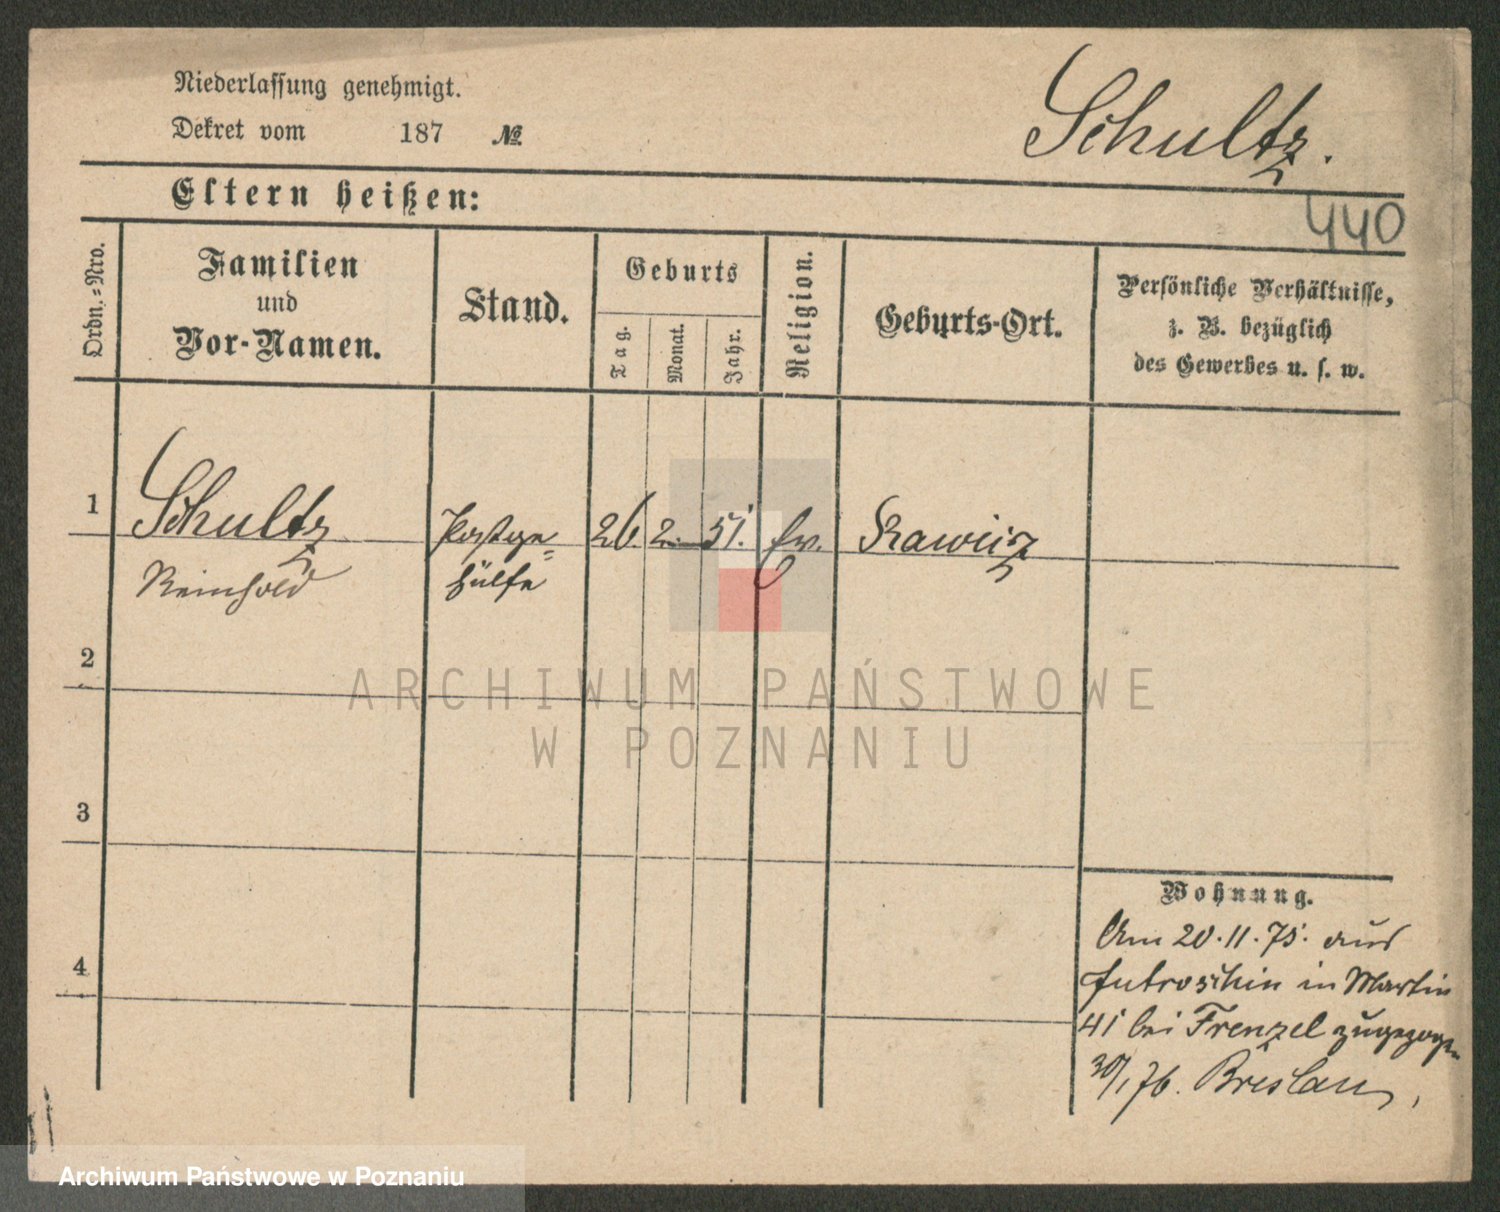 Niederlassung genehmigt.
Dekret vom 187 №
Schultz.
Eltern heißen:
440
Ordn.-Nro.
Familien
und
Vor-Namen.
Stand.
Geburts
Tag.
Monat.
Jahr.
Religion.
Geburts-Ort.
Persönliche Verhältnisse,
z. B. bezüglich
des Gewerbes u. s. w.
1
Schultz
Reinhold
Postge=
hülfe
26. 2. 51. ev. Rawicz
2
3
4
Wohnung.
Am 20.11.75. aus
Jutroschin in Martin
41 bei Frenzel zugezogen
30/1 76. Breslau,
ARCHIWUM PAŃSTWOWE
W POZNANIU
Archiwum Państwowe w Poznaniu